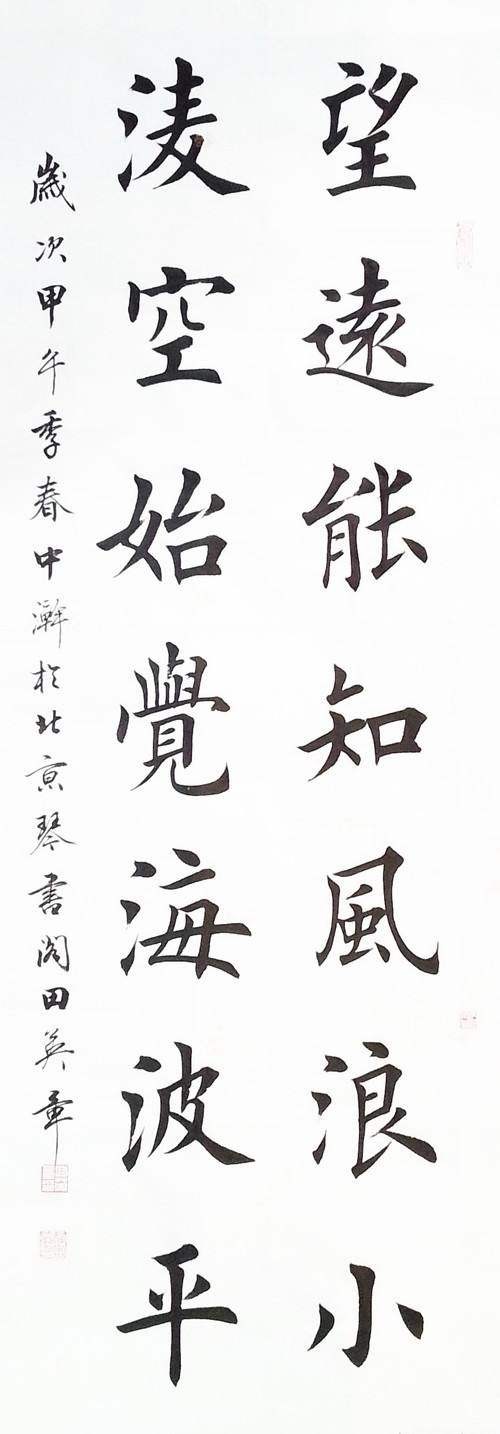 望遠能知風浪小
淩空始覺海波平
歲次甲午季春中澣於北京琴書閣田英章